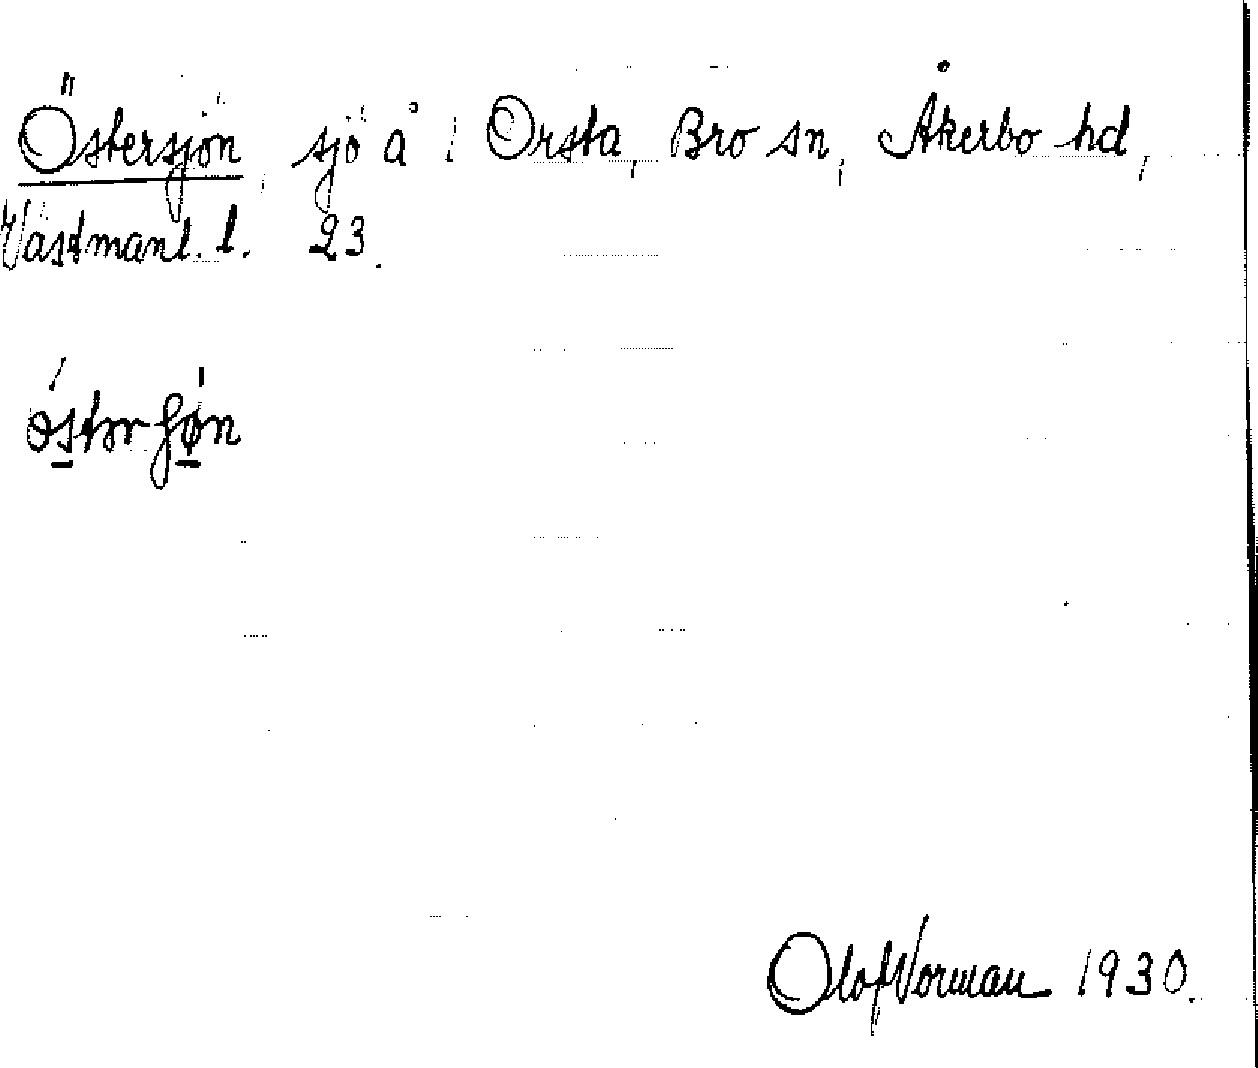 Östersjön, sjö å i Orsta, Bro sn, Åkerbo hd,
Västmanl. l. 23.
Olof Norman 1930.